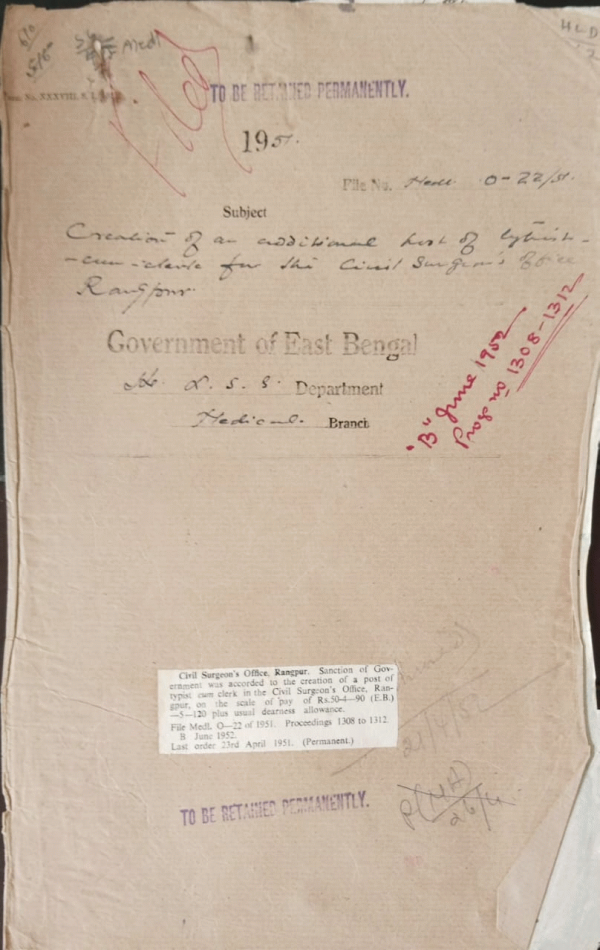 Medl
HLD
TO BE RETAINED PERMANENTLY.
Filed
1951.
File No. Medl. O-22/51.
Subject
Creation of an additional post of typist-
-cum-clerk for the Civil Surgeon's office
Rangpur.
Government of East Bengal
H. & L. S. G. Department
Medical. Branch
"B" June 1952
Progs no 1308-1312
Civil Surgeon's Office, Rangpur. Sanction of Gov-
ernment was accorded to the creation of a post of
typist cum clerk in the Civil Surgeon's Office, Ran-
gpur, on the scale of pay of Rs.50-4-90 (E.B.)
-5-120 plus usual dearness allowance.
File Medl. O-22 of 1951. Proceedings 1308 to 1312
B June 1952.
Last order 23rd April 1951. (Permanent.)
TO BE RETAINED PERMANENTLY.